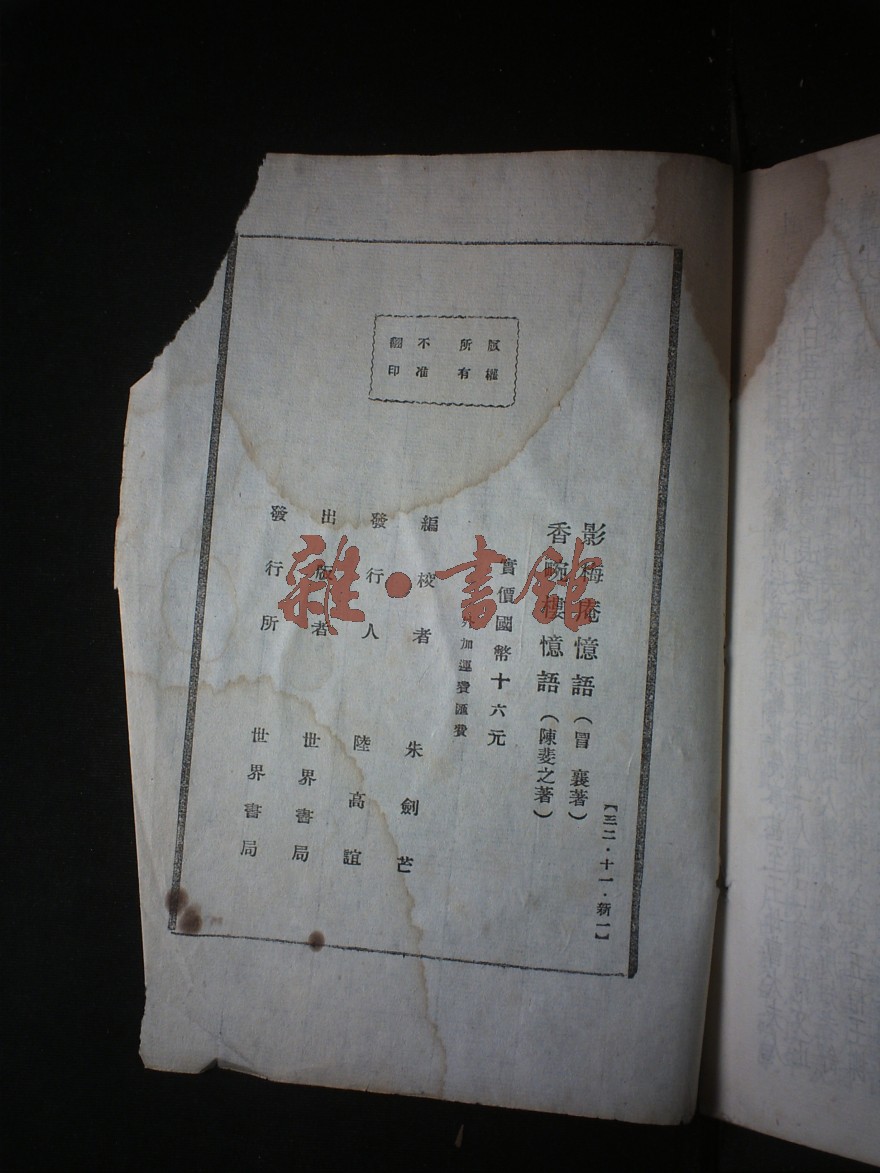 版權
所有
不准
翻印
【三二·十一·新一】
影梅庵憶語（冒襄著）
香畹樓憶語（陳裴之著）
實價國幣十六元
外加運費匯費
編校者 朱劍芒
發行人 陸高誼
出版者 世界書局
發行所 世界書局
雜·書館